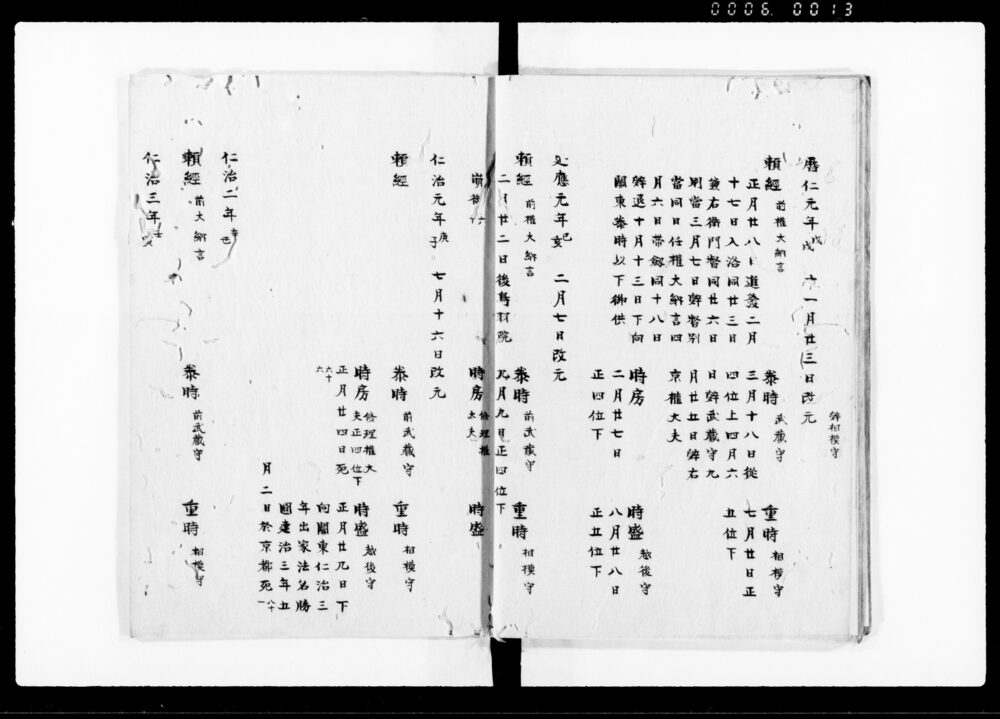 0006. 0013
暦仁元年戊戌 十一月廿三日改元
辞相模守
頼経 前権大納言
正月廿八日進發二月
十七日入洛同廿三日
兼右衛門督同廿六日
別当三月七日辞督別
當同日任権大納言四
月六日帯劔同十八日
辞退十月十三日下向
關東泰時以下御供
泰時 武蔵守
三月十八日従
四位上四月六
日辞武蔵守九
月廿五日辞右
京権大夫
重時 相模守
七月廿日正
五位下
時房
二月廿七日
正四位下
時盛 越後守
八月廿八日
正五位下
延應元年己亥 二月七日改元
頼経 前権大納言
二月廿二日後鳥羽院
泰時 前武蔵守
九月九日正四位下
重時 相模守
時房 修理権大夫
時盛
仁治元年庚子 七月十六日改元
頼経
泰時 前武蔵守
重時 相模守
時房 修理権大夫正四位下
正月廿四日死
六十六
時盛 越後守
正月廿九日下
向關東仁治三
年出家法名勝
圓建治三年五
月二日於京都死 八十一
仁治二年辛丑
頼経 前大納言
泰時 前武蔵守
重時 相模守
仁治三年壬寅